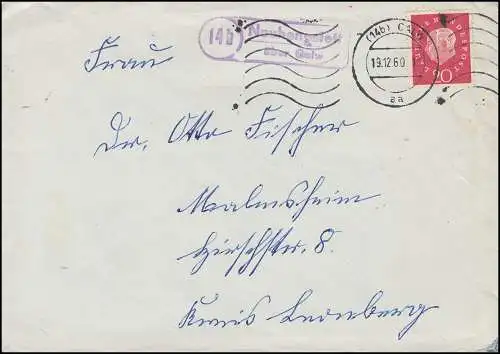 14b Neuhengstett
über Calw
(14b) CALW
19.12.60
aa
DEUTSCHE BUNDESPOST
20
Frau
Dr. Otto Fischer
Malmsheim
Hirschstr. 8.
Kreis Leonberg